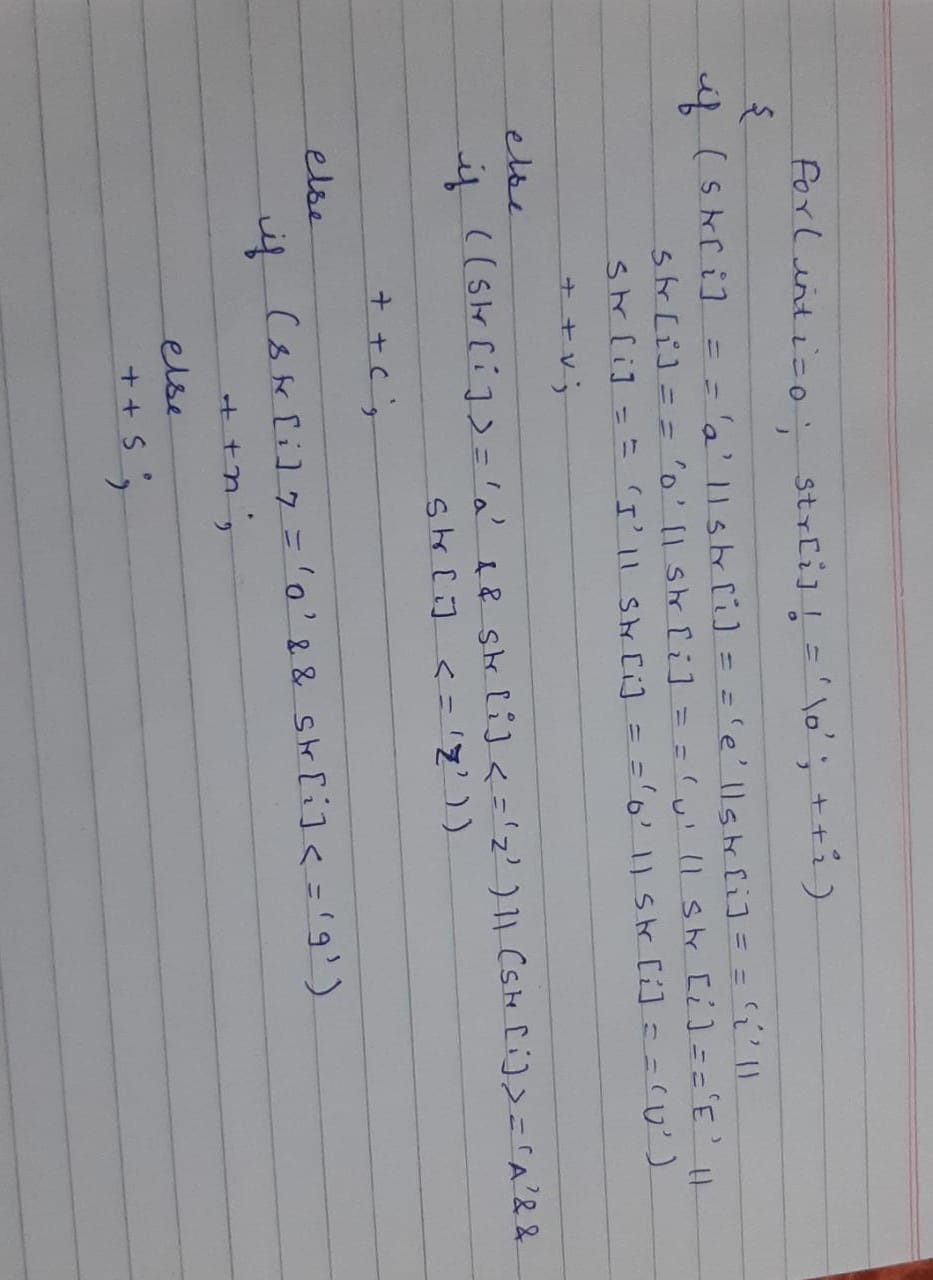 for( int i=0; str[i] != '\0'; ++i)
{
if (str[i] == 'a' || str[i] == 'e' || str[i] == 'i' ||
str[i] == 'o' || str[i] == 'u' || str[i] == 'E' ||
str[i] == 'I' || str[i] == 'O' || str[i] == 'U')
++v;
else
if ((str[i] >= 'a' && str[i] <= 'z') || (str[i] >= 'A' &&
str[i] <= 'Z'))
++c;
else
if (str[i] >= '0' && str[i] <= '9')
++n;
else
++s;